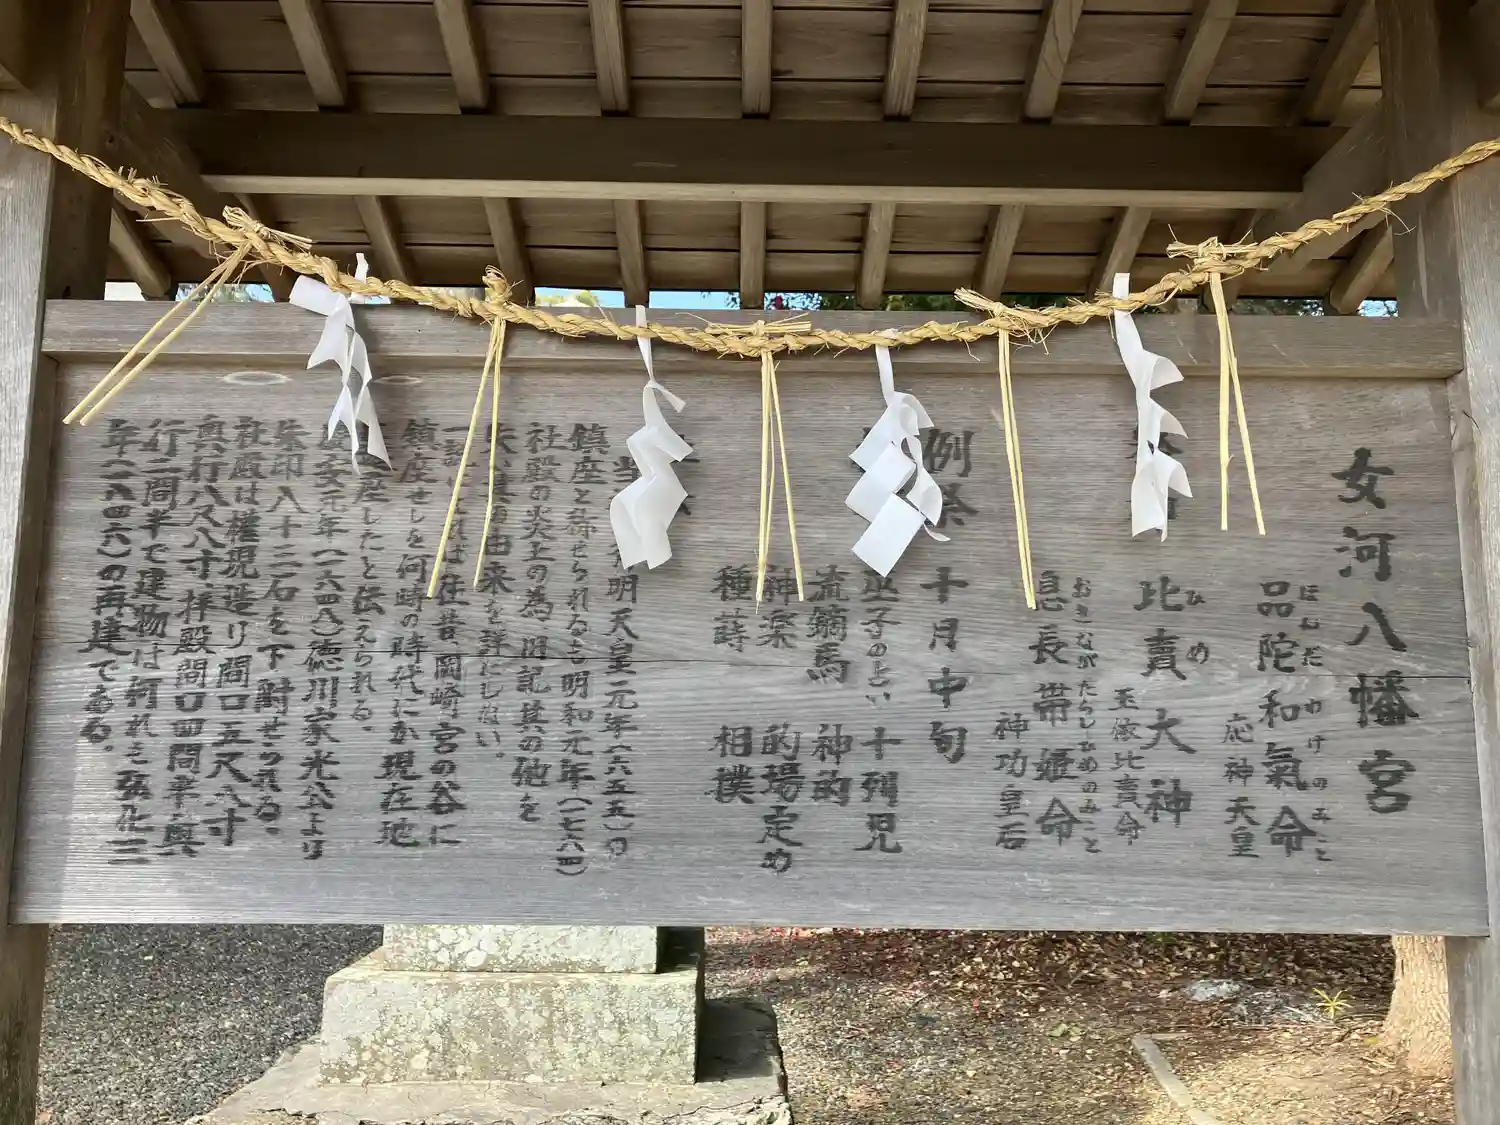 女河八幡宮
品陀和氣命
ほむだ わけのみこと
応神天皇
比賣大神
ひめ
玉依比賣命
息長帯姫命
おきながたらしひめのみこと
神功皇后
例祭 十月中旬
巫子の上い 十列児
流鏑馬 神的
神楽 的場定め
種蒔 相撲
明天皇元年(六五五)に
鎮座と称せられるも明和元年(一七八四)
社殿の炎上の為 旧記其の他を
由来を詳にしない。
一説によれば往昔、岡崎宮の谷に
鎮座せしを何時の時代にか現在地
座したと伝えられる。
慶安元年(一六四八)徳川家光公より
朱印八十二石を下附せられる、
社殿は権現造り間口五尺八寸
奥行八尺八寸拝殿間口四間半奥
行二間半で建物は何れも弘化三
年(一八四六)の再建である。